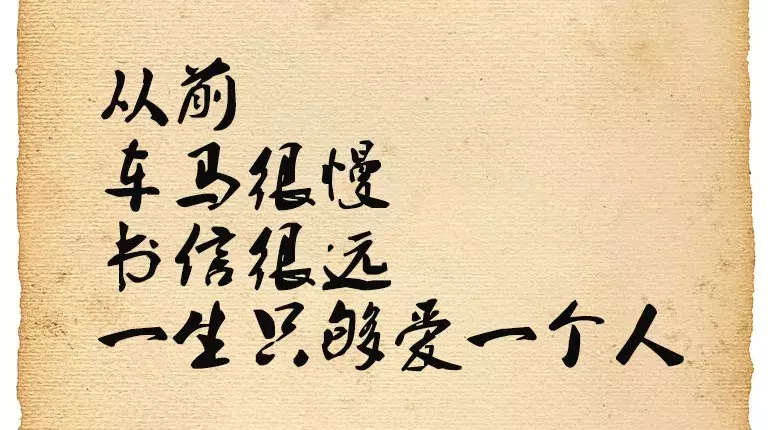 从前
车马很慢
书信很远
一生只够爱一个人